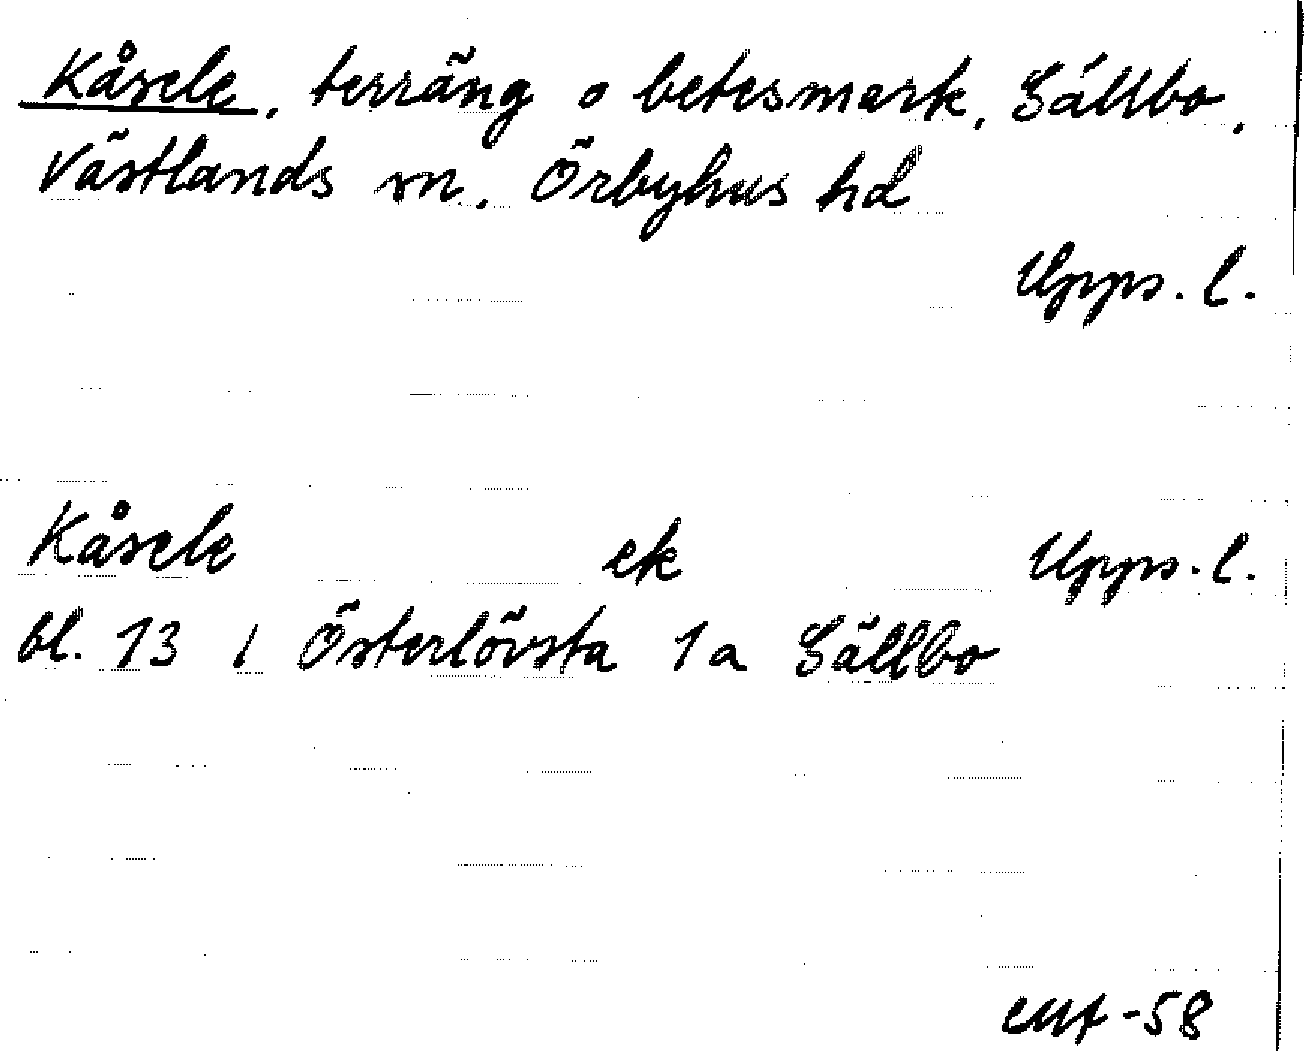 Kåsele, terräng o betesmark, Sällbo,
Västlands sn, Örbyhus hd
Upps. l.
Kåsele ek Upps. l.
bl. 13 / Österlövsta 1a Sällbo
-58